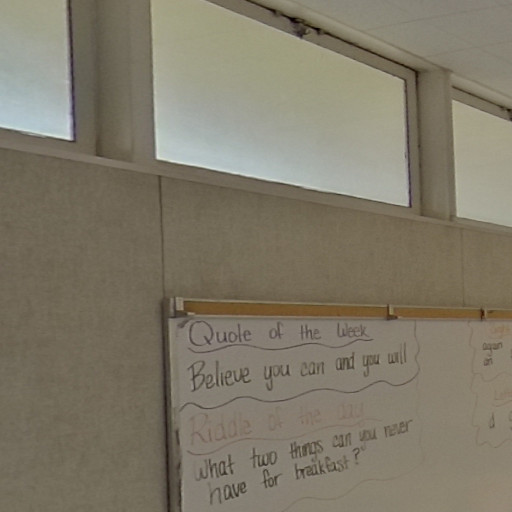 Quote of the Week
Believe you can and you will
Riddle of the day
What two things can you never
have for breakfast?
again
an
d